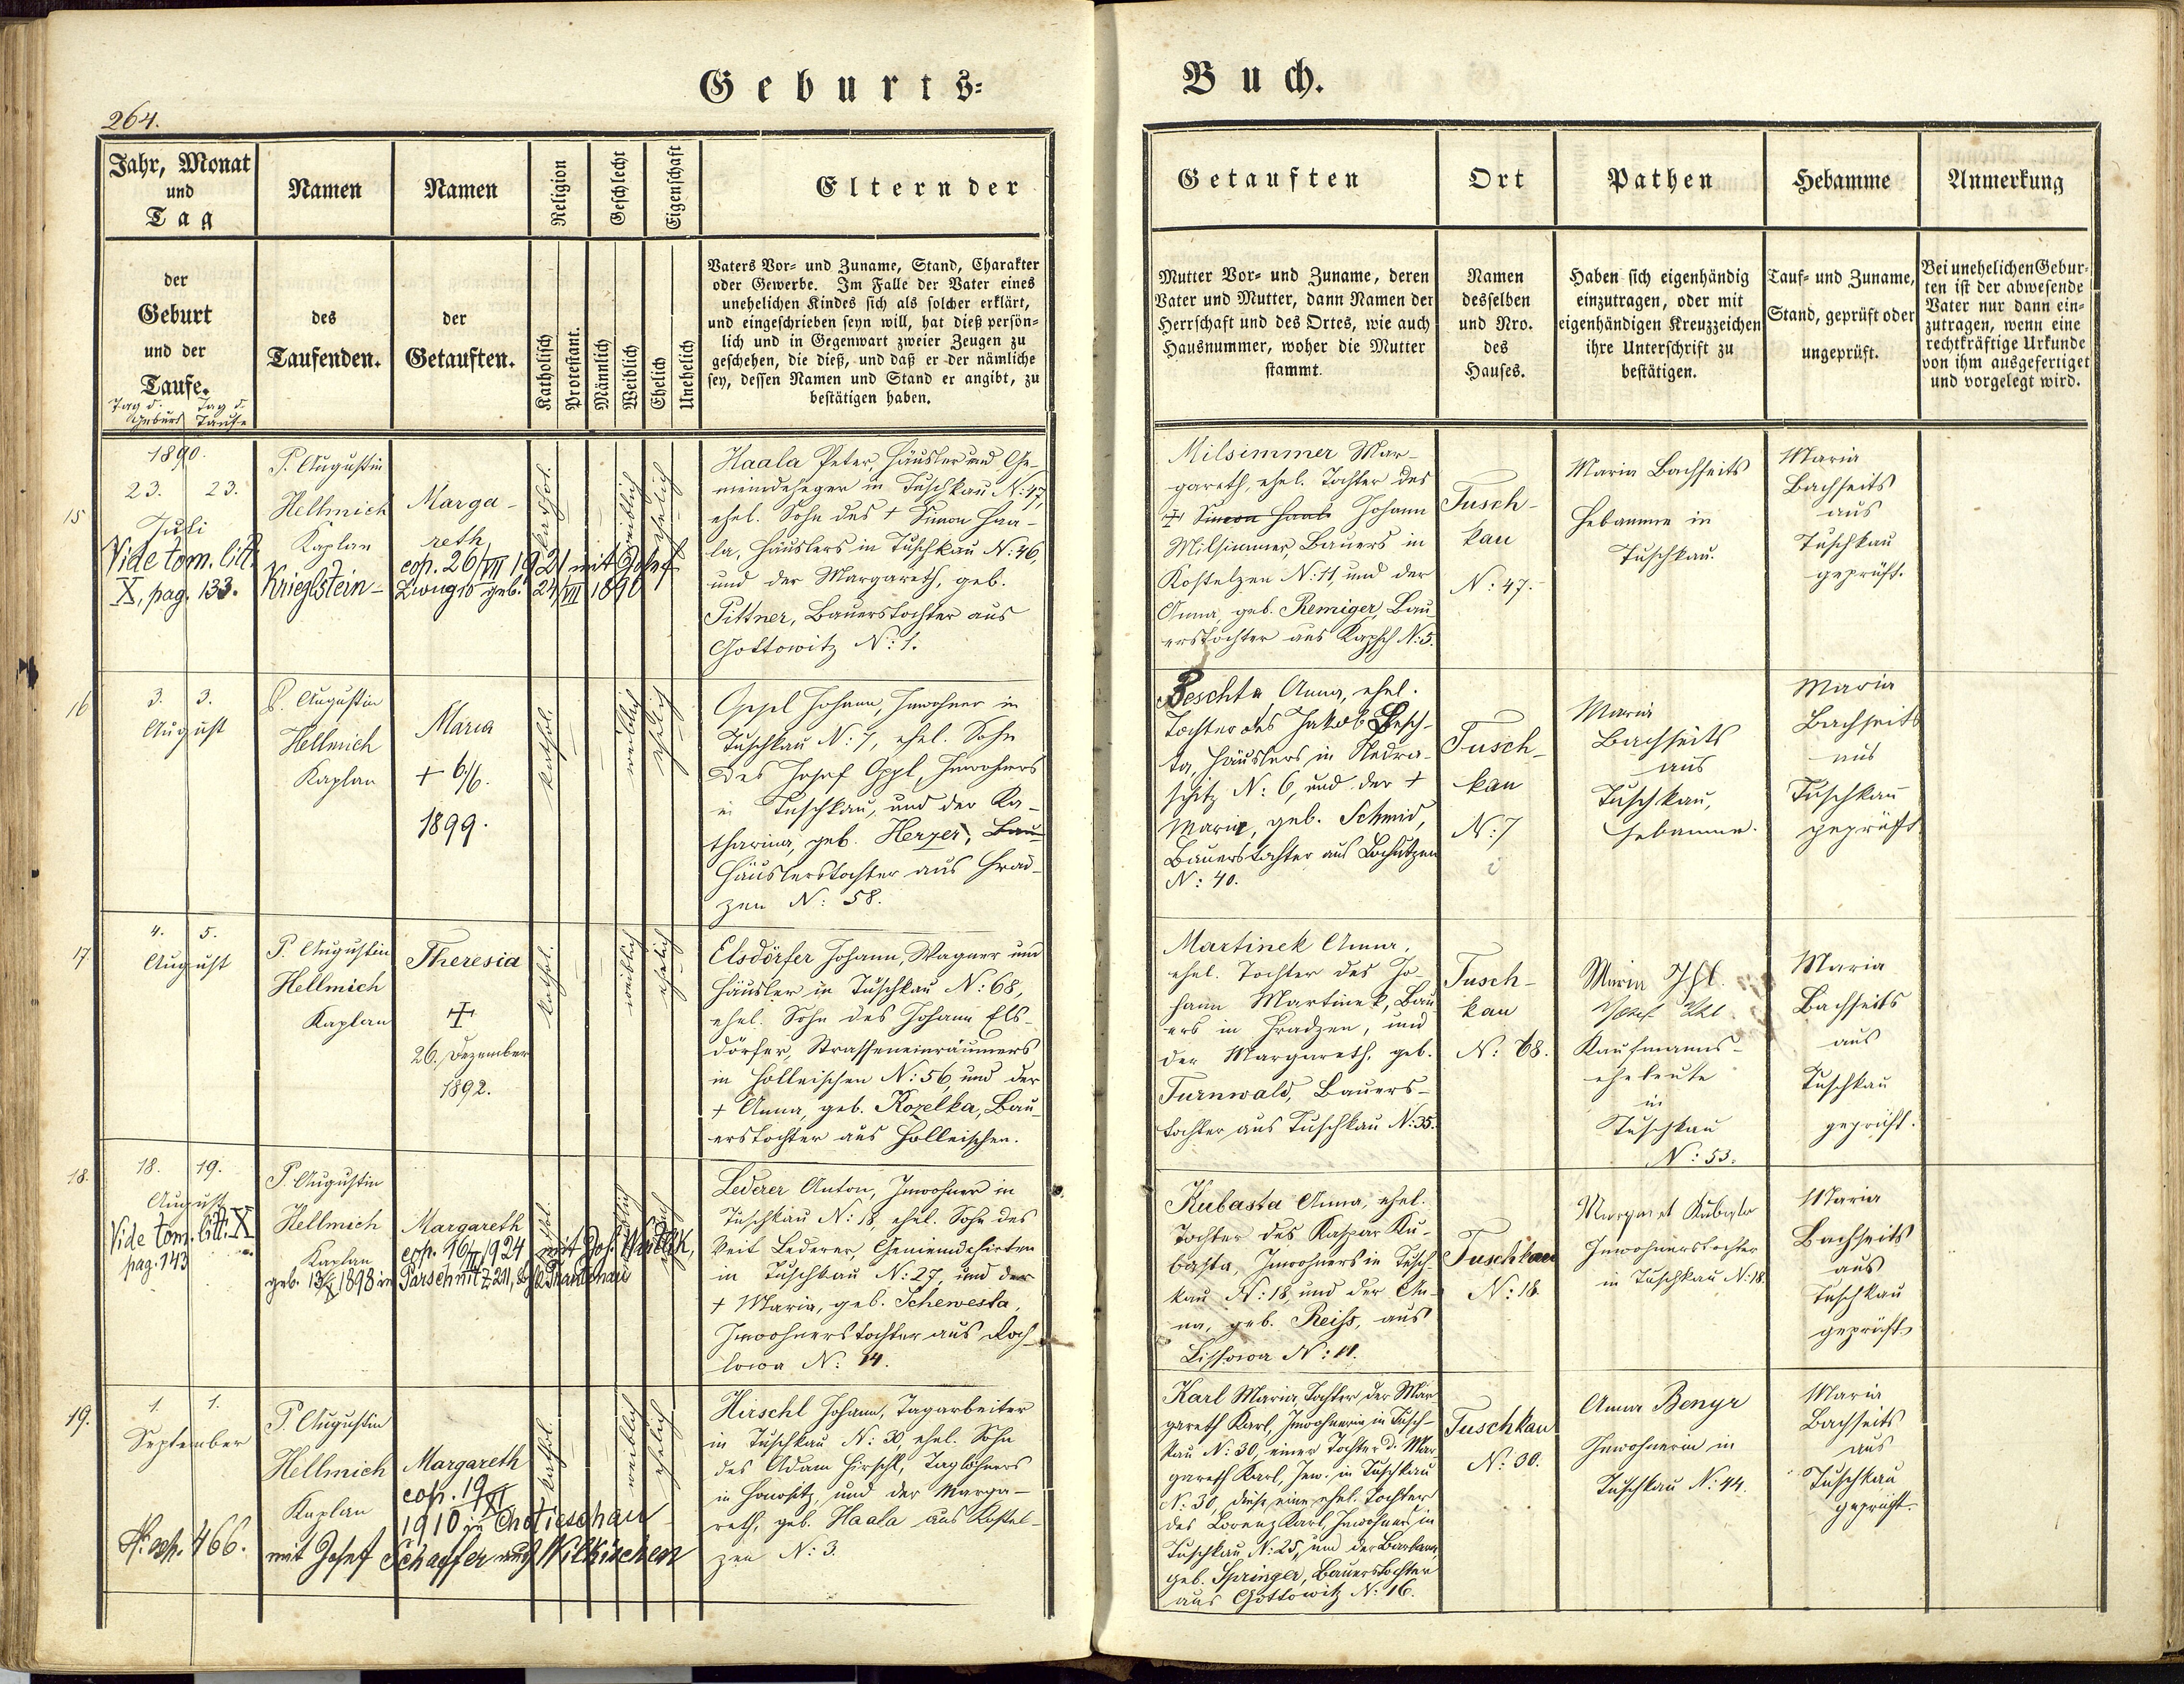 Geburts=
Buch.
264.
Jahr, Monat
und
Tag
Namen
Namen
Religion
Geschlecht
Eigenschaft
Eltern der
der
Geburt
und der
Taufe.
Tag d. Tag d.
Geburt Taufe
des
Taufenden.
der
Getauften.
Katholisch
Protestant.
Männlich
Weiblich
Ehelich
Unehelich
Vaters Vor= und Zuname, Stand, Charakter
oder Gewerbe. Im Falle der Vater eines
unehelichen Kindes sich als solcher erklärt,
und eingeschrieben seyn will, hat dieß persön=
lich und in Gegenwart zweier Zeugen zu
geschehen, die dieß, und daß er der nämliche
sey, dessen Namen und Stand er angibt, zu
bestätigen haben.
Getauften
Ort
Pathen
Hebamme
Anmerkung
Mutter Vor= und Zuname, deren
Vater und Mutter, dann Namen der
Herrschaft und des Ortes, wie auch
Hausnummer, woher die Mutter
stammt.
Namen
desselben
und Nro.
des
Hauses.
Haben sich eigenhändig
einzutragen, oder mit
eigenhändigen Kreuzzeichen
ihre Unterschrift zu
bestätigen.
Tauf= und Zuname,
Stand, geprüft oder
ungeprüft.
Bei unehelichen Gebur=
ten ist der abwesende
Vater nur dann ein=
zutragen, wenn eine
rechtkräftige Urkunde
von ihm ausgefertiget
und vorgelegt wird.
15
1890.
23. 23.
Juli
Vide tom. litt.
X, pag. 133.
P. Augustin
Hellmich
Kaplan
Marga-
reth
cop. 26/VII 1921 mit Josef
Krieglstein- geb. 24/VII 1890
kathol.
weiblich
ehelich
Haala Peter, Häusler und Ge-
meindeheger in Tuschkau N: 47,
ehel. Sohn des + Simon Haa-
la, Häuslers in Tuschkau N: 46,
und der Margareth, geb.
Pittner, Bauerstochter aus
Gottowitz N: 1.
Milsimmer Mar-
gareth, ehel. Tochter des
+ Simon Haala Johann
Milsimmer, Bauers in
Kostelzen N: 11, und der
Anna geb. Remiger, Bau-
erstochter aus Kapsch N: 5.
Tusch-
kau
N: 47.
Maria Bachseits
Hebamme in
Tuschkau.
Maria
Bachseits
aus
Tuschkau
geprüft.
16
3. 3.
August
P. Augustin
Hellmich
Kaplan
Maria
+ 6/6.
1899.
kathol.
weiblich
ehelich
Oppl Johann, Inwohner in
Tuschkau N: 7, ehel. Sohn
des Josef Oppl, Inwohners
in Tuschkau, und der Ka-
tharina, geb. Herzer, Bau-
Häuslerstochter aus Hrad-
zen N: 58.
Peschta Anna, ehel.
Tochter des Jakob Pesch-
ta, Häuslers in Nedra-
schitz N: 6, und der +
Maria, geb. Schmid,
Bauerstochter aus Lochutzen
N: 40.
Tusch-
kau
N: 7
Maria
Bachseits
aus
Tuschkau,
Hebamme.
Maria
Bachseits
aus
Tuschkau
geprüft.
17
4. 5.
August
P. Augustin
Hellmich
Kaplan
Theresia
+
26. Dezember
1892.
kathol.
weiblich
ehelich
Elsdörfer Johann, Wagner und
Häusler in Tuschkau N: 68,
ehel. Sohn des Johann Els-
dörfer, Strasseneinräumers
in Holleischen N: 56, und der
+ Anna, geb. Kozelka, Bau-
erstochter aus Holleischen.
Martinek Anna,
ehel. Tochter des Jo-
hann Martinek, Bau-
ers in Hradzen, und
der Margareth, geb.
Turnwald, Bauers-
tochter aus Tuschkau N: 35.
Tusch-
kau
N: 68.
Maria Ihl.
Josef Ihl
Kaufmanns-
eheleute
in
Tuschkau
N: 53.
Maria
Bachseits
aus
Tuschkau
geprüft.
18.
18. 19.
August
Vide tom. litt. X
pag. 143
P. Augustin
Hellmich
Kaplan
Margareth
cop. 16/II 1924 mit Joh.
geb. 1898 in Parschnitz 211,
kathol.
weiblich
ehelich
Lederer Anton, Inwohner in
Tuschkau N: 18, ehel. Sohn des
Veit Lederer, Gemeindehirten
in Tuschkau N: 27, und der
+ Maria, geb. Schewesta,
Inwohnerstochter aus Roch-
lowa N: 14.
Kubasta Anna, ehel.
Tochter des Kaspar Ku-
basta, Inwohners in Tusch-
kau N: 18, und der An-
na, geb. Reiss, aus
Lissowa N: 11.
Tuschkau
N: 18.
Margaret Kubasta
Inwohnerstochter
in Tuschkau N: 18.
Maria
Bachseits
aus
Tuschkau
geprüft.
19.
1. 1.
September
P. Augustin
Hellmich
Kaplan
Margareth
cop. 19/XI
1910 in Chotieschau
mit Josef Schaffer aus Wilkischen
N: exh. 466.
kathol.
weiblich
ehelich
Hirschl Johann, Tagarbeiter
in Tuschkau N: 30, ehel. Sohn
des Adam Hirschl, Taglöhners
in Honositz, und der Marga-
reth, geb. Haala aus Kostel-
zen N: 3.
Karl Maria, Tochter der Mar-
gareth Karl, Inwohnerin in Tusch-
kau N: 30, einer Tochter d. Mar-
gareth Karl, Inw. in Tuschkau
N: 30, diese eine ehel. Tochter
des Lorenz Karl, Inwohners in
Tuschkau N: 25, und der Barbara,
geb. Springer, Bauerstochter
aus Gottowitz N: 16.
Tuschkau
N: 30.
Anna Benyr
Inwohnerin in
Tuschkau N: 44.
Maria
Bachseits
aus
Tuschkau
geprüft.